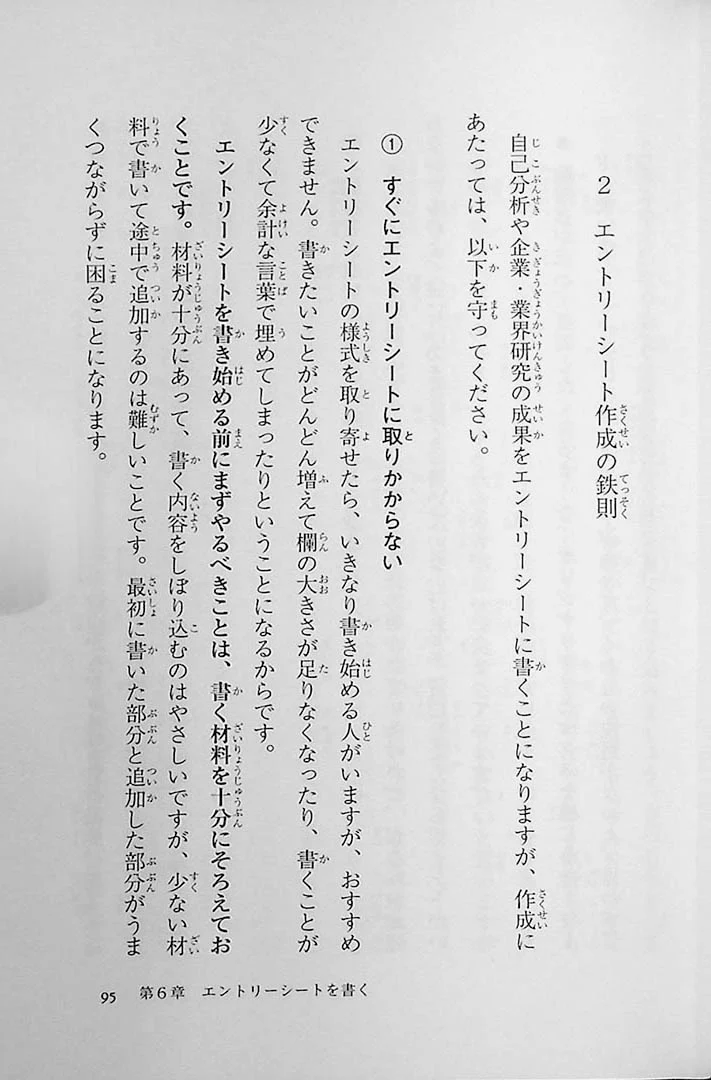 2　エントリーシート作成の鉄則
自己分析や企業・業界研究の成果をエントリーシートに書くことになりますが、作成に
あたっては、以下を守ってください。
① すぐにエントリーシートに取りかからない
エントリーシートの様式を取り寄せたら、いきなり書き始める人がいますが、おすすめ
できません。書きたいことがどんどん増えて欄の大きさが足りなくなったり、書くことが
少なくて余計な言葉で埋めてしまったりということになるからです。
エントリーシートを書き始める前にまずやるべきことは、書く材料を十分にそろえてお
くことです。材料が十分にあって、書く内容をしぼり込むのはやさしいですが、少ない材
料で書いて途中で追加するのは難しいことです。最初に書いた部分と追加した部分がうま
くつながらずに困ることになります。
95　第6章　エントリーシートを書く